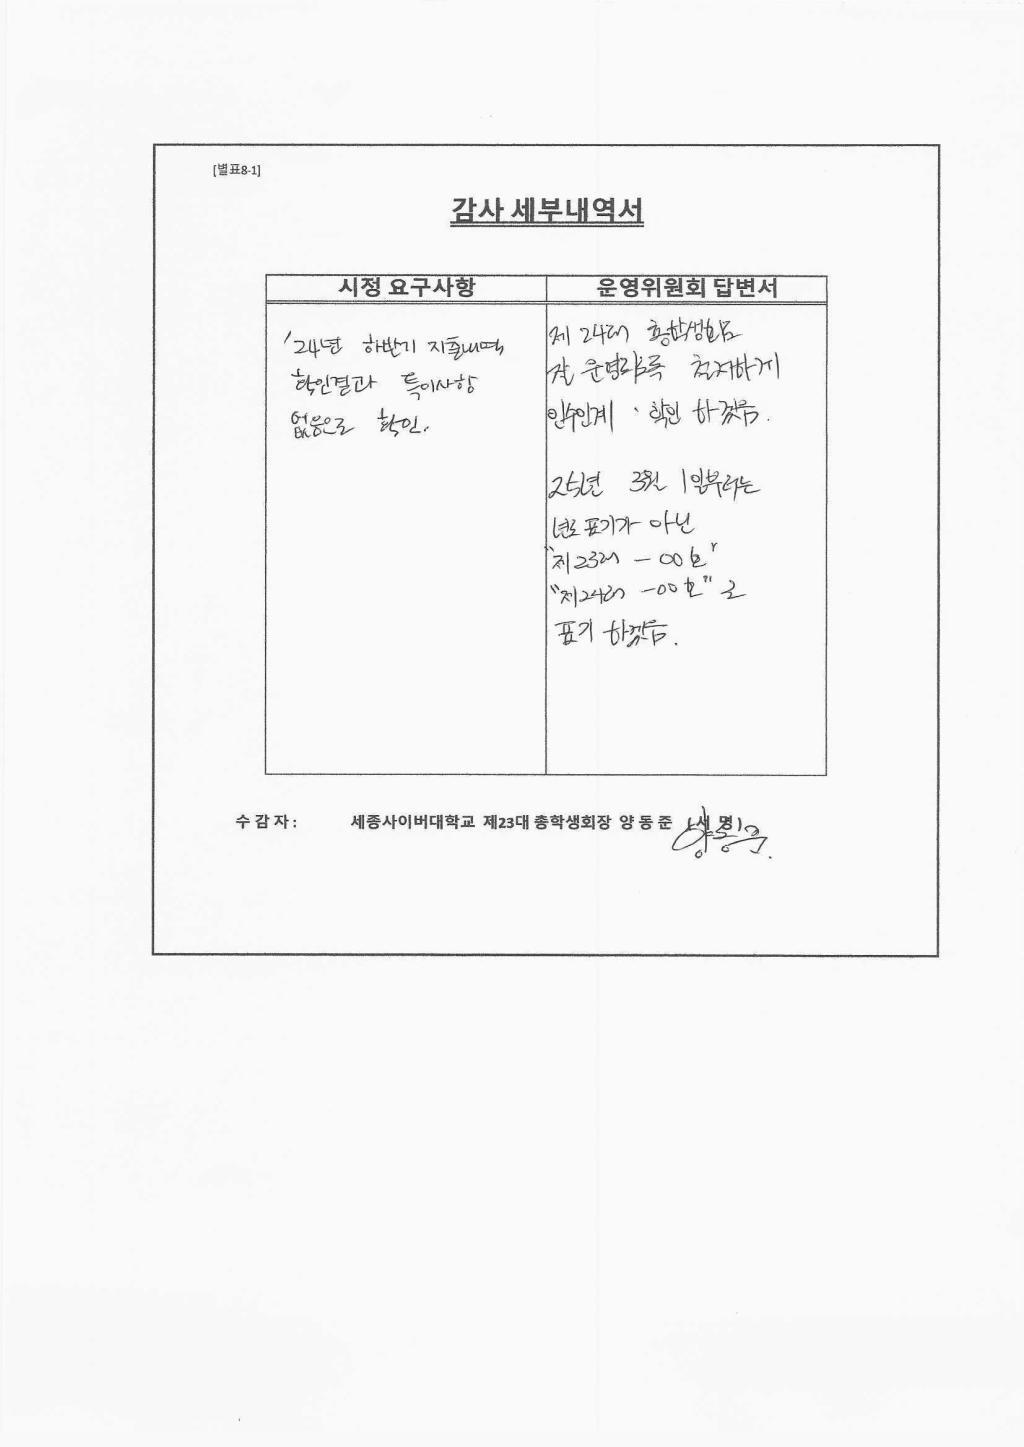 [별표8-1]
감사 세부내역서
시정 요구사항
운영위원회 답변서
'24년 하반기 지출내역
확인결과 특이사항
없음으로 확인.
제 24대 총학생회도
잘 운영되도록 철저하게
인수인계 · 확인 하겠음.
25년 3월 1일부터는
년도 표기가 아닌
"제23대 - 00호"
"제24대 - 00호" 로
표기 하겠음.
수 감 자 : 세종사이버대학교 제23대 총학생회장 양 동 준 (서 명)
양동준